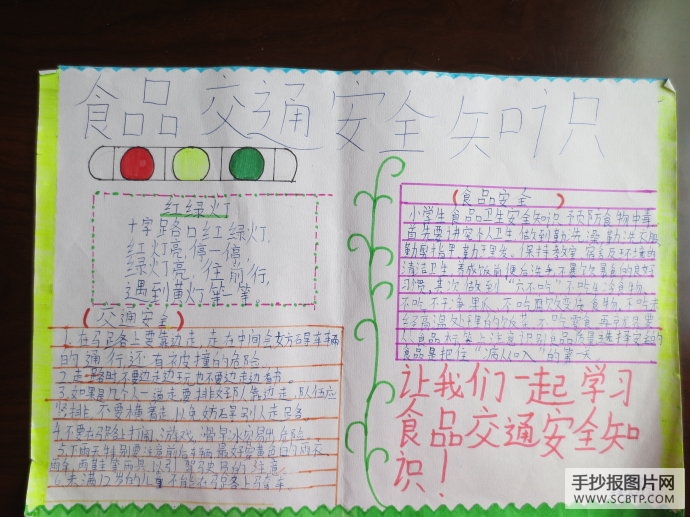 食品交通安全知识
红绿灯
十字路口红绿灯,
红灯亮,停一停,
绿灯亮,往前行,
遇到黄灯等一等。
(交通安全)
1.在马路上要靠边走,走在中间会妨碍车辆
的通行还有被撞的危险。
2.走路时不要边走边玩也不要边走边看书。
3.如果是几个人一道走要排好队靠边走,队伍应
竖排,不要横着走以免妨碍别人走路
4.不要在马路上打闹、游戏、滑旱冰容易出危险。
5.下雨天特别要注意前后车辆,最好穿黄色的雨衣
雨鞋等雨具以引起驾驶员的注意。
6.未满12岁的儿童不能在马路上骑车。
(食品安全)
小学生食品卫生安全知识 预防食物中毒,
首先要讲究个人卫生 做到勤洗澡,勤洗衣服,
勤剪指甲,勤理发。保持教室 宿舍及环境的
清洁卫生 养成饭前便后洗手 不暴饮暴食的良好
习惯,其次做到“六不吃” 不吃生冷食物
不吃不干净果 不吃腐败变质食物 不吃未
经高温处理的饭菜 不吃零食
食品
食品是把住“病从口入”的第一关。
让我们一起学习
食品交通安全知
识!
手抄报图片网
WWW.SCBTP.COM